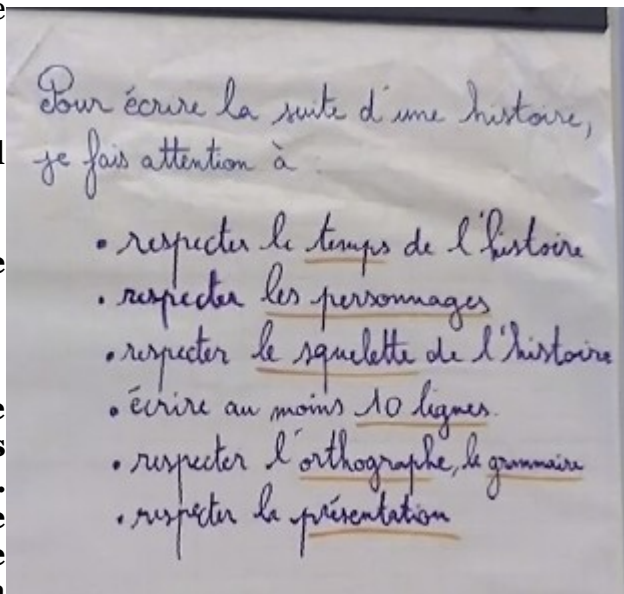 Pour écrire la suite d'une histoire,
je fais attention à :
• respecter le temps de l'histoire
• respecter les personnages
• respecter le squelette de l'histoire
• écrire au moins 10 lignes.
• respecter l'orthographe, la grammaire
• respecter la présentation